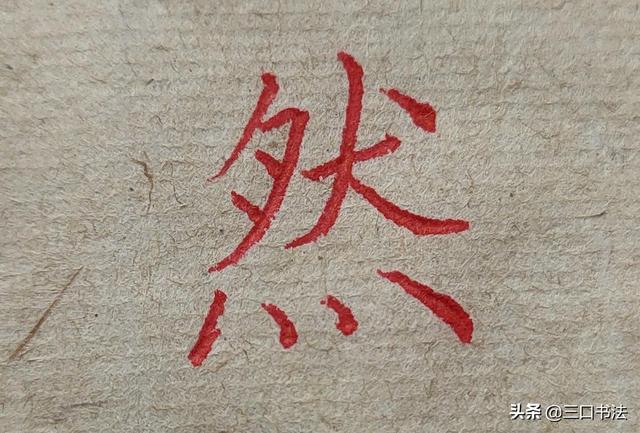 然
头条 @三口书法